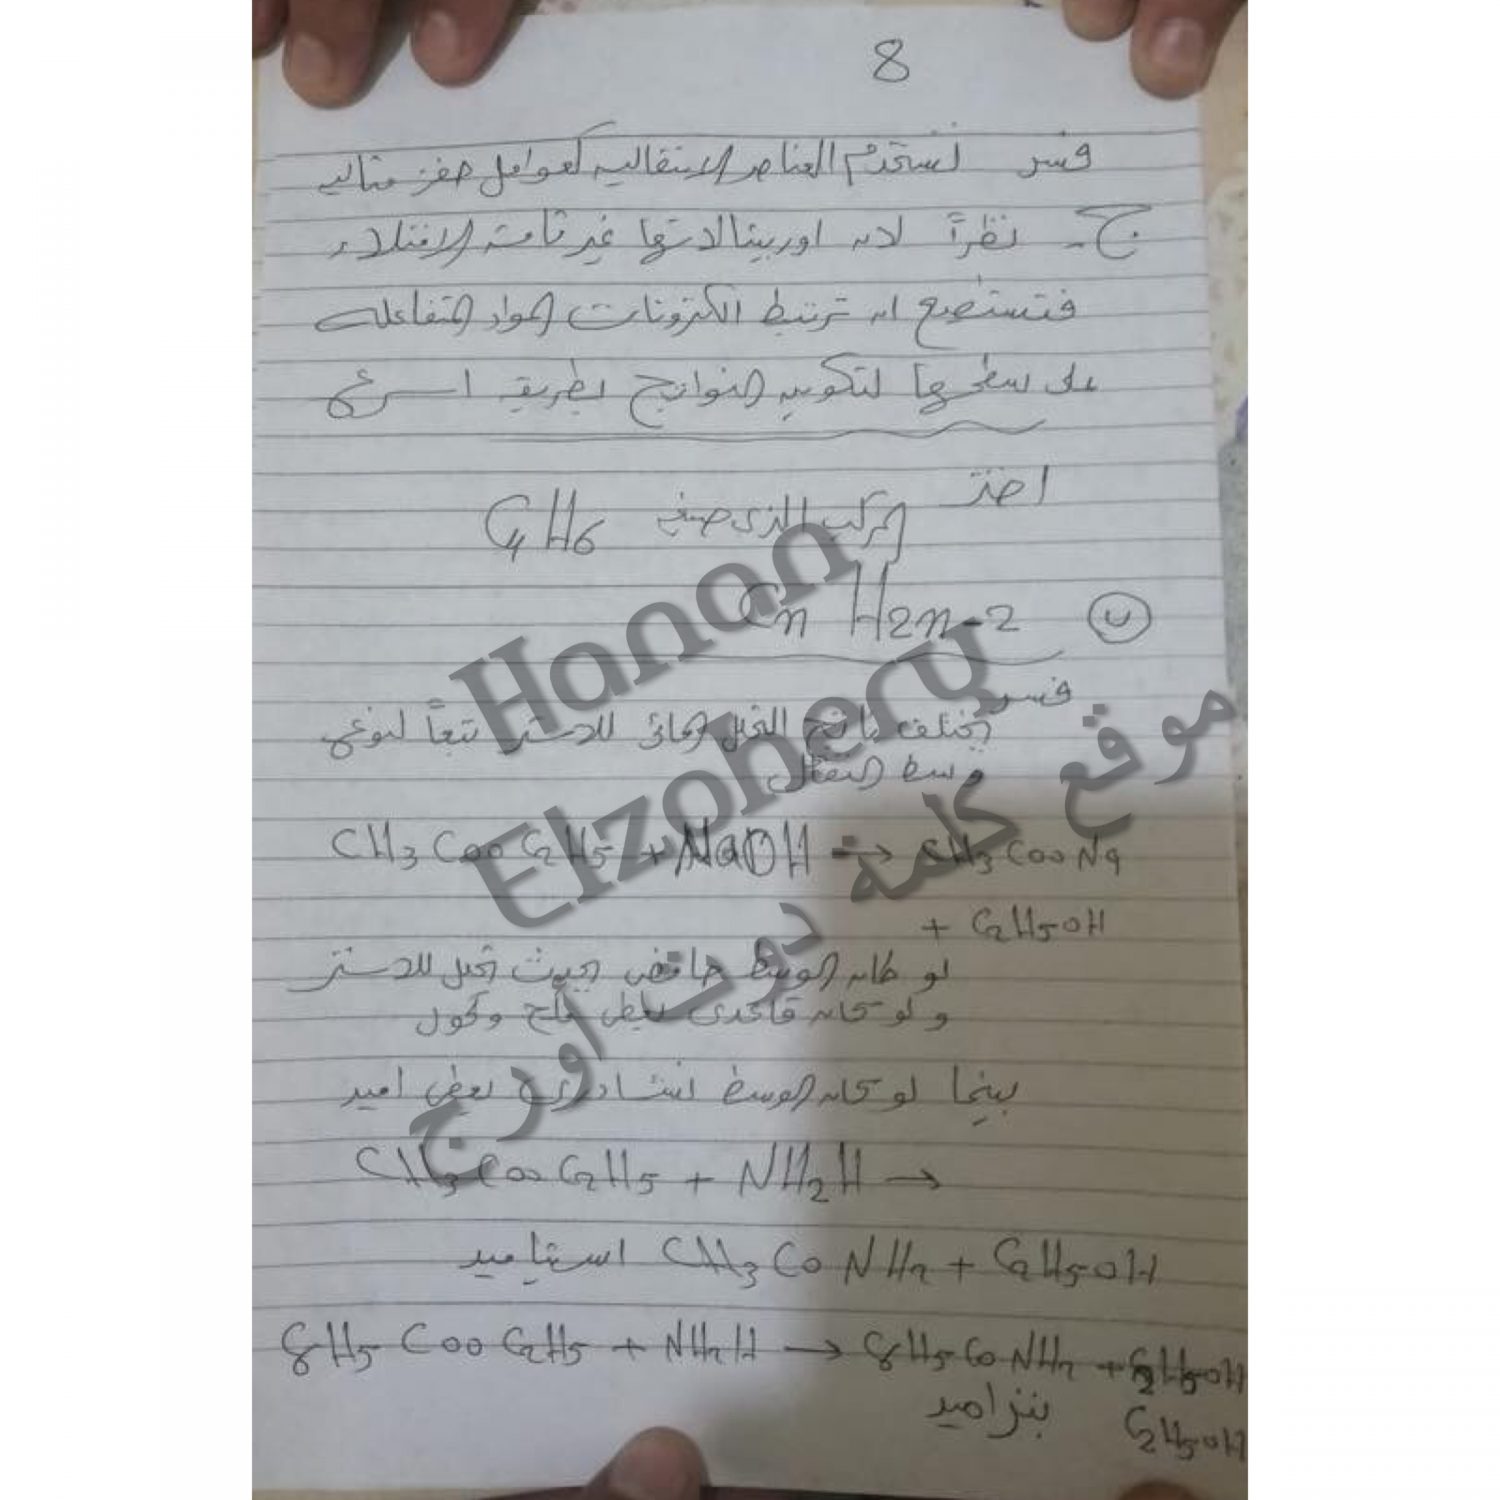 8
فسر تستخدم العناصر الانتقاليه كعوامل حفز مثاليه
ج- نظراً لان اوربيتالاتها غير تامة الامتلاء
فتستطيع ان ترتبط الكترونات المواد المتفاعله
على سطحها لتكوين النواتج بطريقه اسرع
اختر
المركب الذى صيغته C4H6
ب CnH2n-2
فسر
يختلف ناتج التحلل المائى للاستر تبعاً لنوع
وسط التفاعل
CH3COOC2H5 + NaOH → CH3COONa
+ C2H5OH
لو كان الوسط حامضى يحدث تحلل للاستر
ولو كان قاعدى يعطى ملح وكحول
بينما لو كان الوسط نشادرى يعطى اميد
CH3COOC2H5 + NH2H →
استياميد CH3CONH2 + C2H5OH
C6H5COOC2H5 + NH2H → C6H5CONH2 + C2H5OH
بنزاميد C2H5OH
Hanan
Elzohery
موقع كلمة دوت اورج